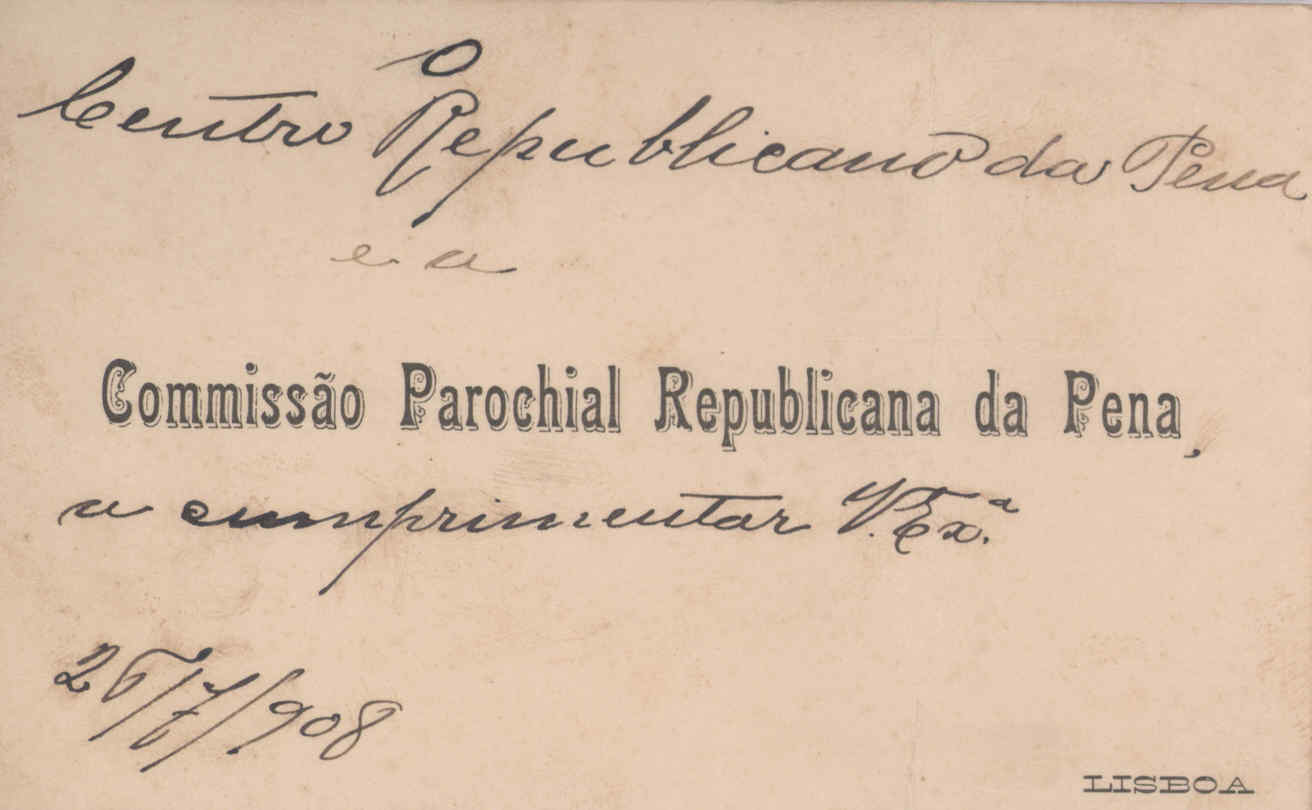 O
Centro Republicano da Pena
e a
Commissão Parochial Republicana da Pena,
a cumprimentar V. Ex.ª
25/7/908
LISBOA